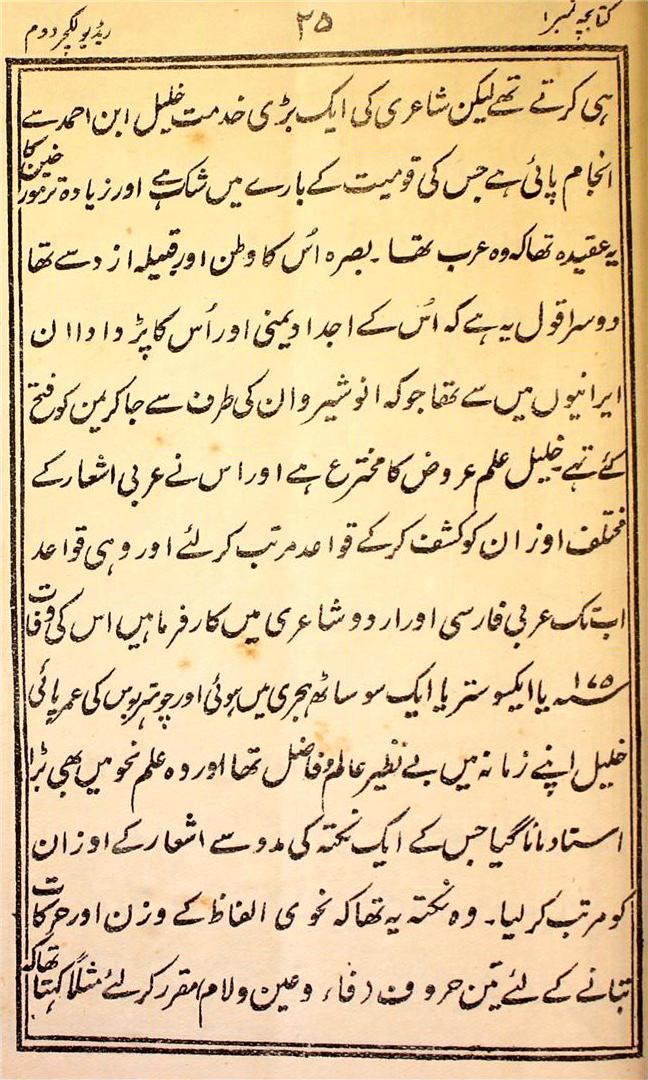 کتابچہ نمبر۱
۲۵
ریڈیو لکچر دوم
ہی کرتے تھے لیکن شاعری کی ایک بڑی خدمت خلیل ابن احمد سے
انجام پائی ہے جس کی قومیت کے بارے میں شک ہے اور زیادہ تر مورخین کا
یہ عقیدہ تھا کہ وہ عرب تھا۔ بصرہ اُس کا وطن اور قبیلہ ازد سے تھا
دوسرا قول یہ ہے کہ اُس کے اجداد یمنی اور اُس کا پڑ دادا ان
ایرانیوں میں سے تھا جو کہ انوشیروان کی طرف سے جا کر یمن کو فتح
کئے تہے۔ خلیل علم عروض کا مخترع ہے اور اس نے عربی اشعار کے
مختلف اوزان کو کشف کر کے قواعد مرتب کر لئے اور وہی قواعد
اب تک عربی فارسی اور اردو شاعری میں کارفرما ہیں اس کی وفات
۱۷۵ سنہ یا ایکسو ستر یا ایک سو ساٹھ ہجری میں ہوئی اور چوہتر برس کی عمر پائی
خلیل اپنے زمانہ میں بے نظیر عالم و فاضل تھا اور وہ علم نحو میں بھی بڑا
استاد مانا گیا جس کے ایک نکتہ کی مدد سے اشعار کے اوزان
کو مرتب کر لیا۔ وہ نکتہ یہ تھا کہ نحوی الفاظ کے وزن اور حرکات
بتانے کے لئے تین حروف (فاء و عین و لام) مقرر کر لئے مثلاً کہتا تھا کہ